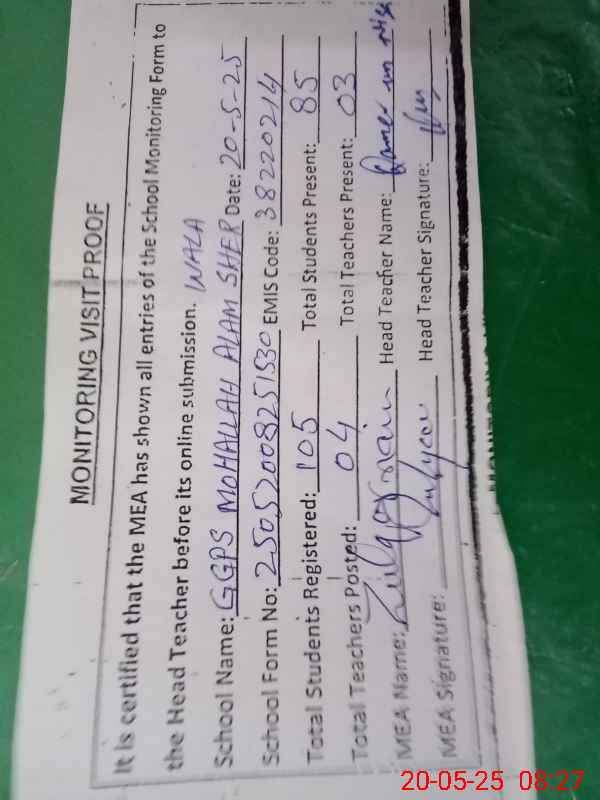 MONITORING VISIT PROOF
It is certified that the MEA has shown all entries of the School Monitoring Form to
the Head Teacher before its online submission. WALA
School Name: GGPS MOHALLAH ALAM SHER Date: 20-5-25
School Form No: 25052008251530 EMIS Code: 38220214
Total Students Registered: 105 Total Students Present: 85
Total Teachers Posted: 04 Total Teachers Present: 03
MEA Name: Head Teacher Name:
MEA Signature: Head Teacher Signature:
20-05-25 08:27